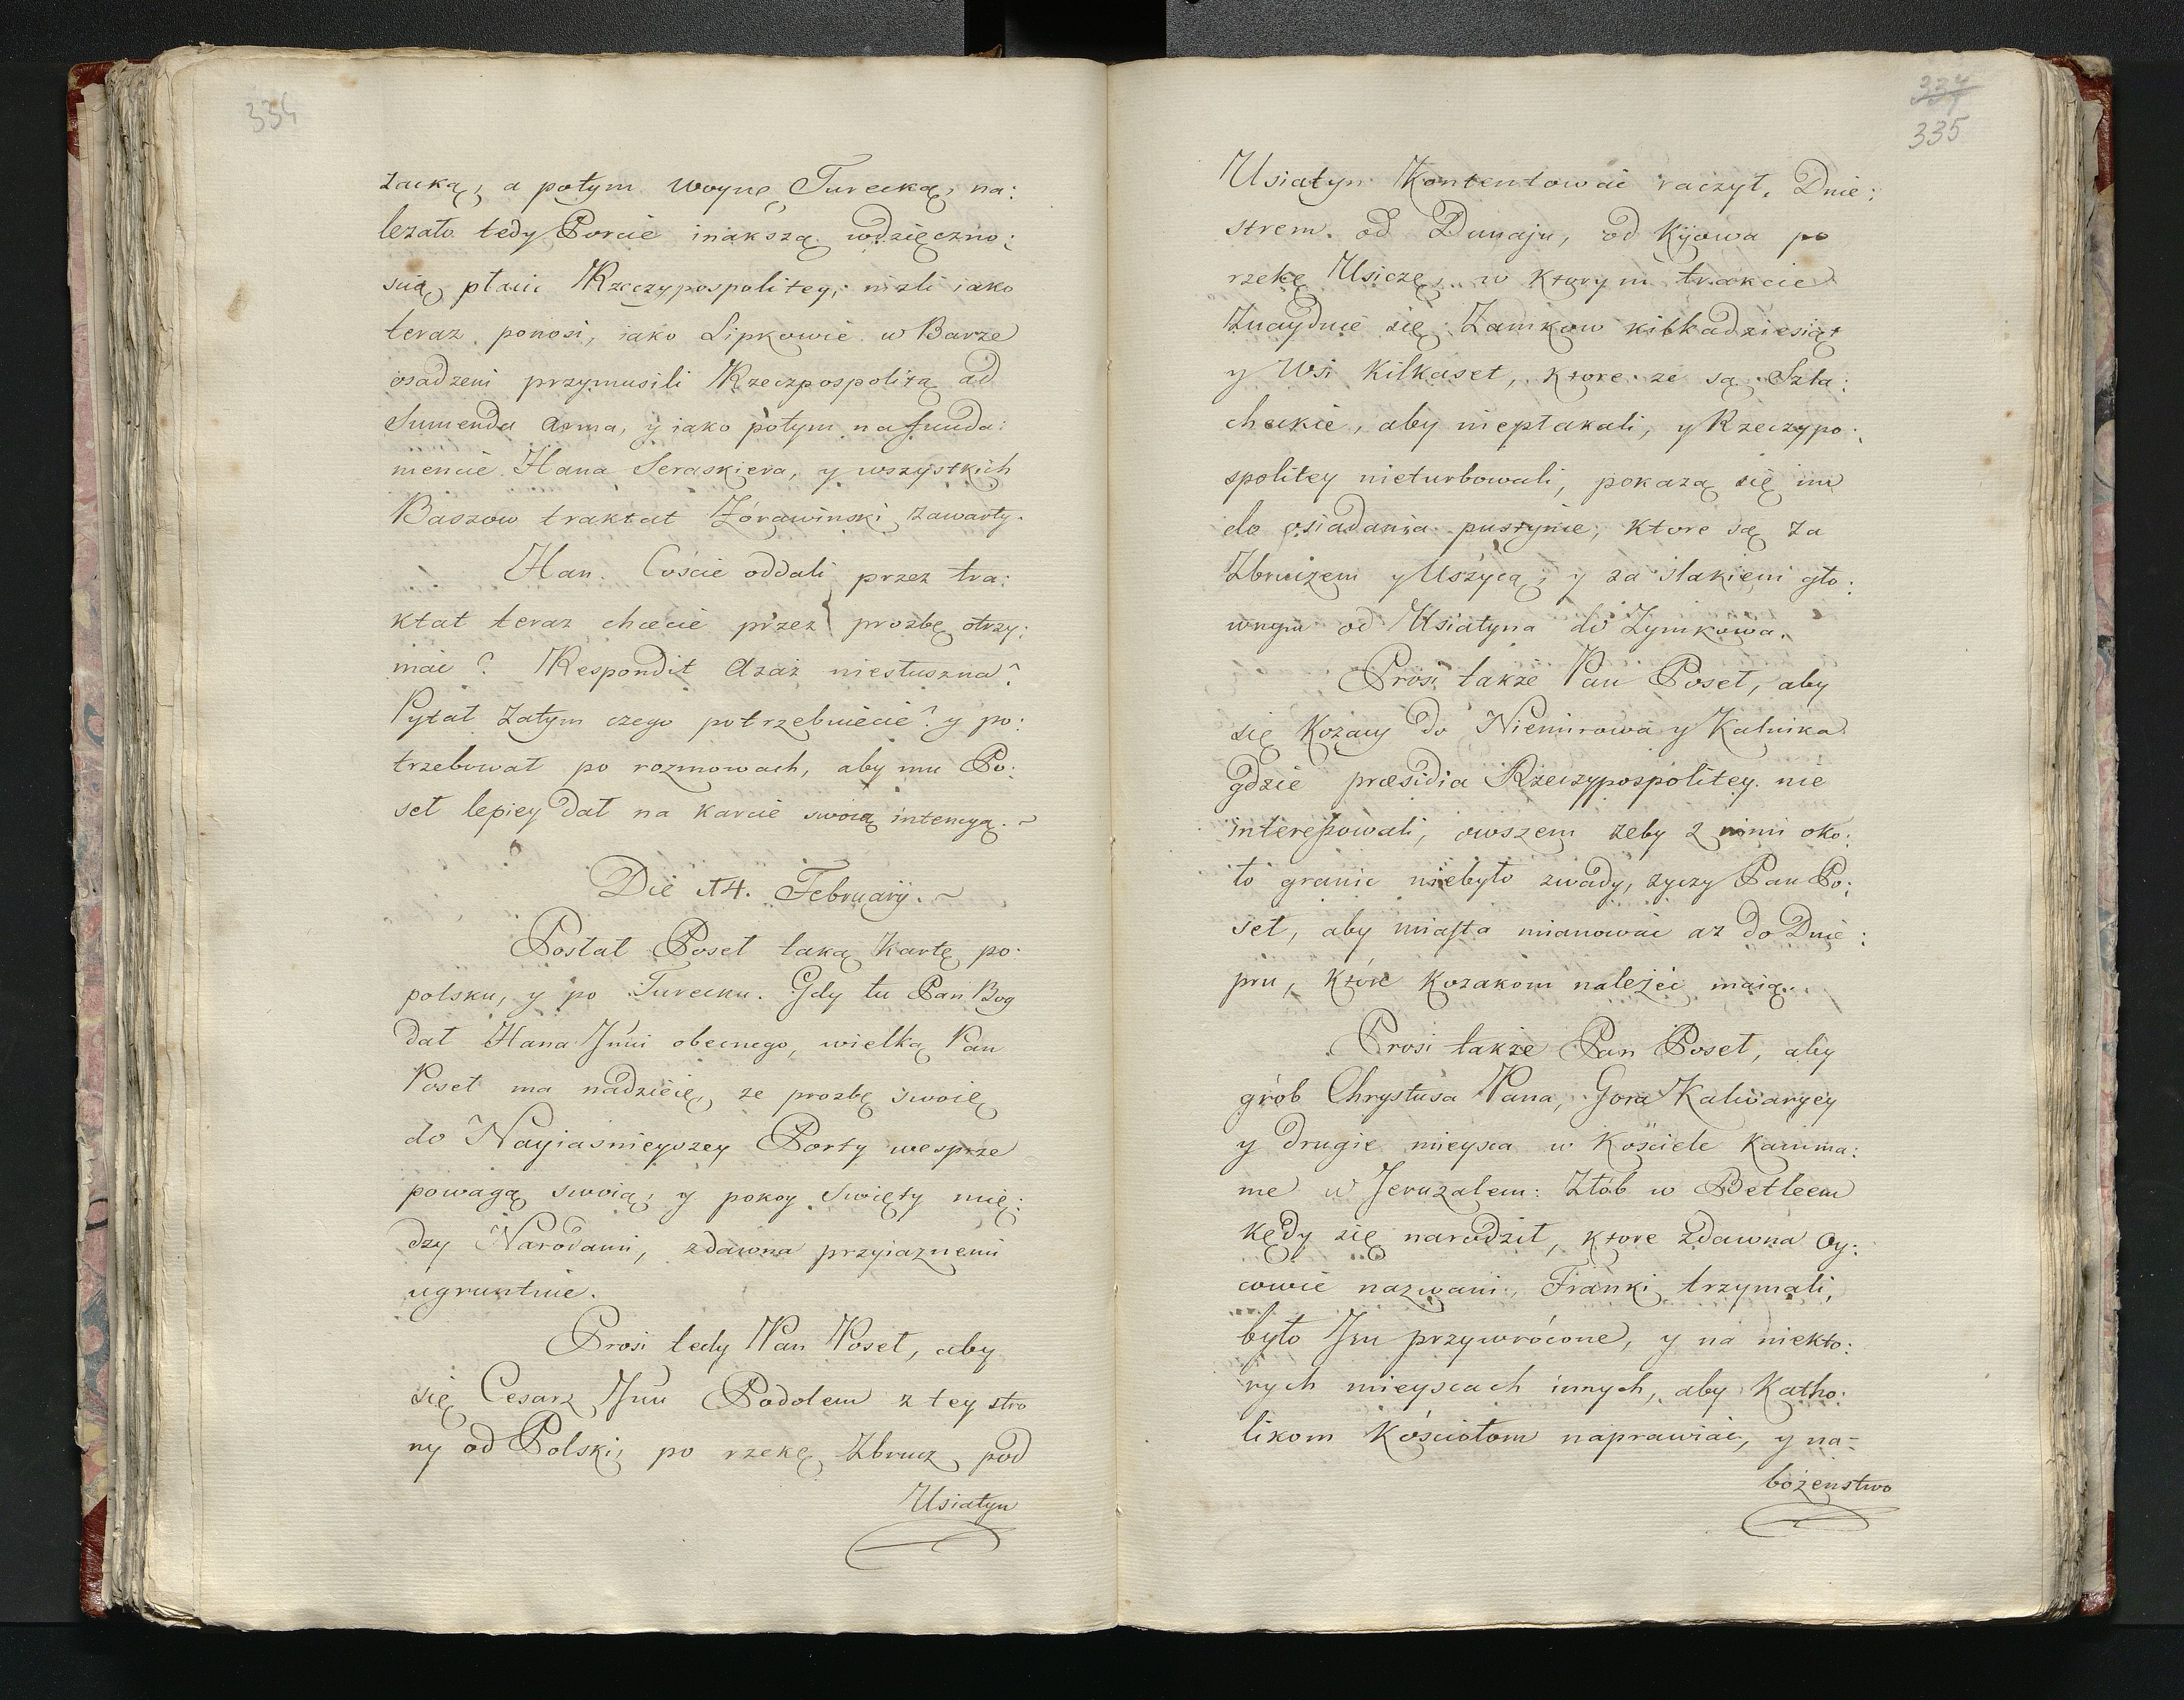 334
zacką, a potym woynę Turecką, na:
lezało tedy Porcie inákszą wdzięczno:
scią płacic Rzeczypospolitey, nizli iako
teraz ponosi, iako Lipkowie w Barze
osadzeni przymusili Rzeczpospolitą ad
Sumenda Arma, y iako potym na funda:
mencie Hana Seraskiera, y wszystkich
Baszow traktat Zórawinski zawarty.
Han. Coscie oddali przez tra:
ktat teraz chcecie przez prozbę otrzy:
mac? Respondit Azaz niesłuszna?
Pytał zatym czego potrzebuiecie? y po:
trzebował po rozmowach, aby mu Po:
seł lepiey dał na karcie swoią intencyą. ~
Die 14. Februarij. ~
Posłał Poseł taką Kartę po
polsku, y po Turecku. Gdy tu Pan Bog
dał Hana Jmci obecnego, wielką Pan
Poseł ma nadzieię, ze prozbę swoię
do Nayiasnieyszey Porty wesprze
powagą swoią, y pokoy Swięty mię:
dzy Narodami, zdawna przyiaznemi
ugruntuie.
Prosi tedy Pan Poseł, aby
się Cesarz Jmc Podolem z tey stro
ny od Polski, po rzekę Zbrucz pod
Usiatyn
337
335
Usiatyn Kontentowac raczył, Dnie:
strem od Dunaju, od Kijowa po
rzekę Usiczę, w Ktorym trakcie
Znayduie się Zamkow kilkadziesiąt
y Wsi Kilkaset, Ktore ze są Szla:
checkie, aby niepłakali, y Rzeczypo:
spolitey nieturbowali, pokazą się im
do osiadania pustynie, Ktore są za
Zbruczem y Uszycą, y za slakiem gło:
wnym od Usiatyna do Zymkowa.
Prosi także Pan Poseł, aby
się Kozacy do Niemirowa y Kalnika
gdzie præsidia Rzeczypospolitey nie
interessowali, owszem zeby z nimi oko:
ło granic niebyło zwady, zyczy Pan Po:
seł, aby miasta mianowac az do Dnie:
pru, Które Kozakom należec maią.
Prosi także Pan Poseł, aby
grób Chrystusa Pana, Gora Kalwaryey
y drugie mieysca w Kosciele Kamma:
me w Jeruzalem: Złób w Betleem
kędy się narodził, Ktore zdawna Oy:
cowie nazwani, Franki trzymali,
było Jm przywrócone, y na niekto:
rych mieyscach innych, aby Katho:
likom Kósciołow naprawiac, y na-
bożenstwo